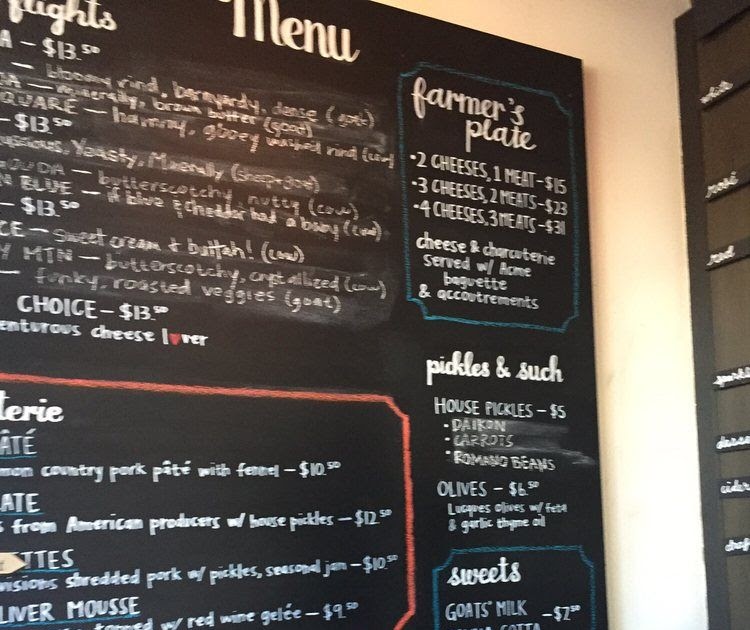 flights
Menu
A – $13.50
— bloomy rind, barnyardy, dense (goat)
DA — minerally, brown butter (goat)
SQUARE — hammy, gooey washed rind (cow)
– $13.50
Yeasty, Minerally (sheep+goat)
GOUDA — butterscotchy, nutty (cow)
N BLUE — if blue & cheddar had a baby (cow)
– $13.50
CE – sweet cream + buttah! (cow)
Y MTN – butterscotchy, crystallized (cow)
— funky, roasted veggies (goat)
CHOICE – $13.50
enturous cheese l♥ver
farmer's
plate
•2 CHEESES, 1 MEAT – $15
•3 CHEESES, 2 MEATS – $23
•4 CHEESES, 3 MEATS – $31
cheese & charcuterie
served w/ Acme
baguette
& accoutrements
pickles & such
HOUSE PICKLES – $5
• DAIKON
• CARROTS
• ROMANO BEANS
OLIVES – $6.50
Lucques olives w/ feta
& garlic thyme oil
sweets
GOATS' MILK – $7.50
terie
PÂTÉ
mon country pork pâté with fennel – $10.50
ATE
s from American producers w/ house pickles – $12.50
TTES
visions shredded pork w/ pickles, seasonal jam – $10.50
LIVER MOUSSE
topped w/ red wine gelée – $9.50
white
rosé
red
sparkl
desse
cider
draf